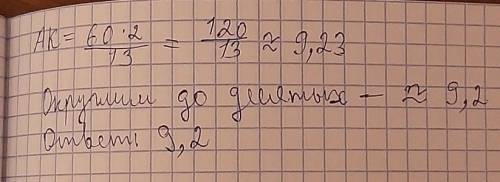 АК = 60·2/13 = 120/13 ≈ 9,23
Округлим до десятых — ≈ 9,2
Ответ: 9,2